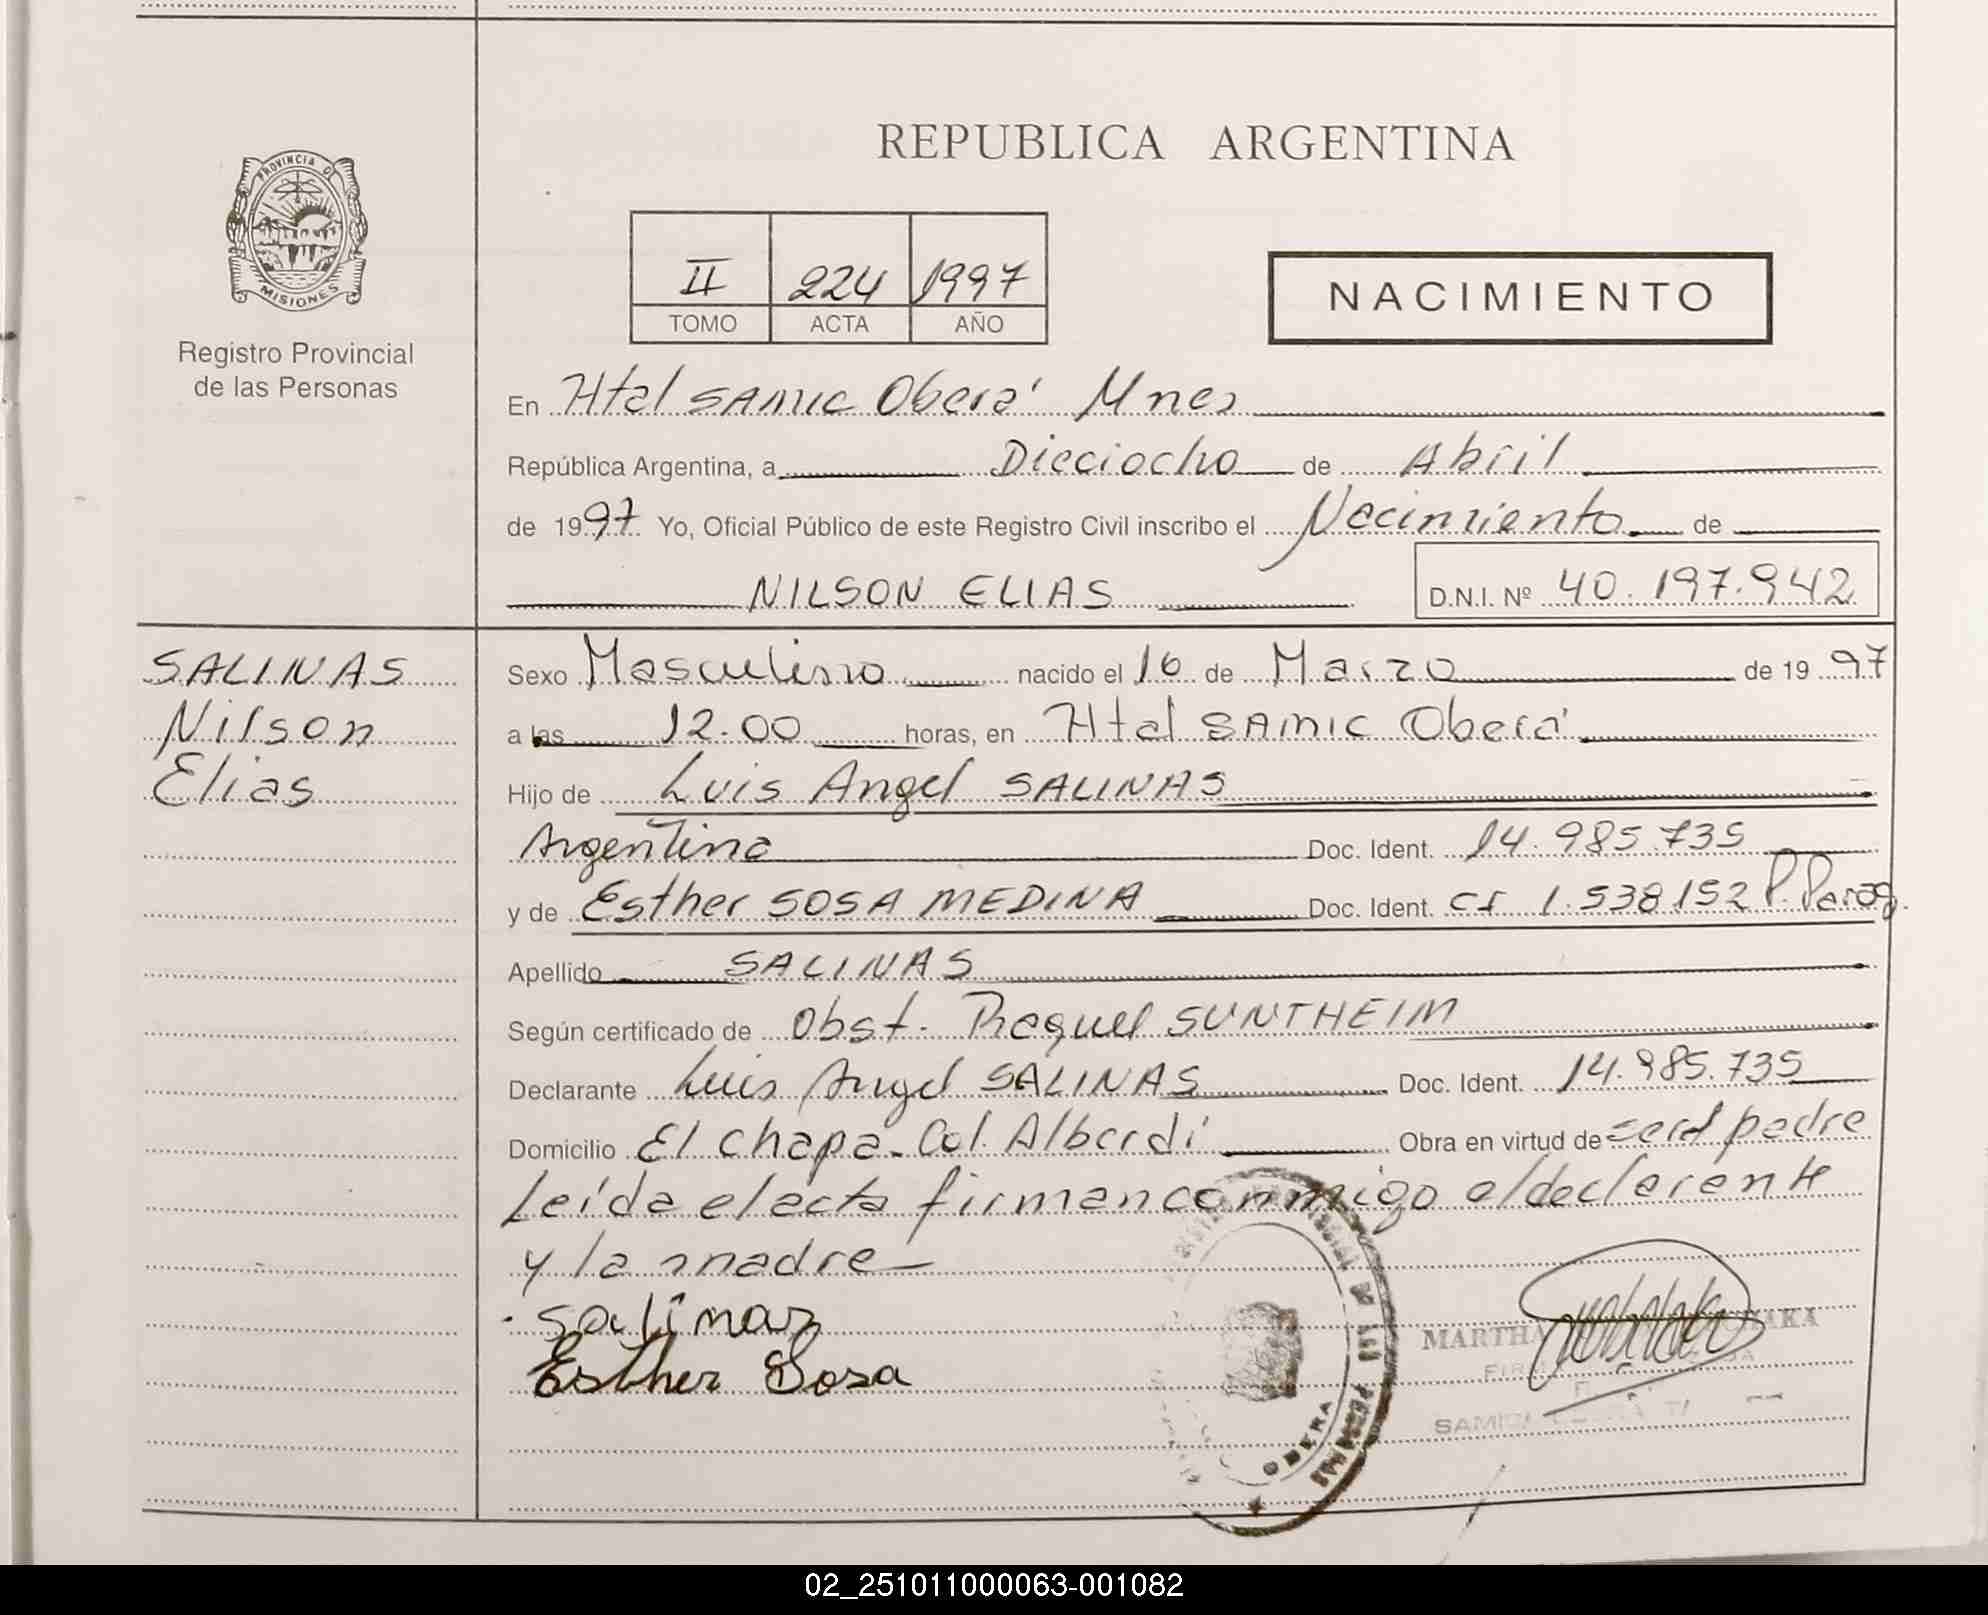 REPUBLICA ARGENTINA
PROVINCIA D
MISIONES
Registro Provincial
de las Personas
II 224 1997
TOMO ACTA AÑO
NACIMIENTO
En Htal SAMIC Oberá Mnes
República Argentina, a Dieciocho de Abril
de 1997 Yo, Oficial Público de este Registro Civil inscribo el Nacimiento de
NILSON ELIAS D.N.I. Nº 40.197.942
SALINAS
Nilson
Elias
Sexo Masculino nacido el 16 de Marzo de 1997
a las 12.00 horas, en Htal SAMIC Oberá
Hijo de Luis Angel SALINAS
Argentina Doc. Ident. 14.985.735
y de Esther SOSA MEDINA Doc. Ident. CI 1.538152 P. Parag.
Apellido SALINAS
Según certificado de Obst. Raquel SUNTHEIM
Declarante Luis Angel SALINAS Doc. Ident. 14.985.735
Domicilio El chapa - Col. Alberdi Obra en virtud de ser el padre
Leída el acta firman conmigo el declarante
y la madre
Salinas
Esther Sosa
MARTHA
OBERA
02_251011000063-001082